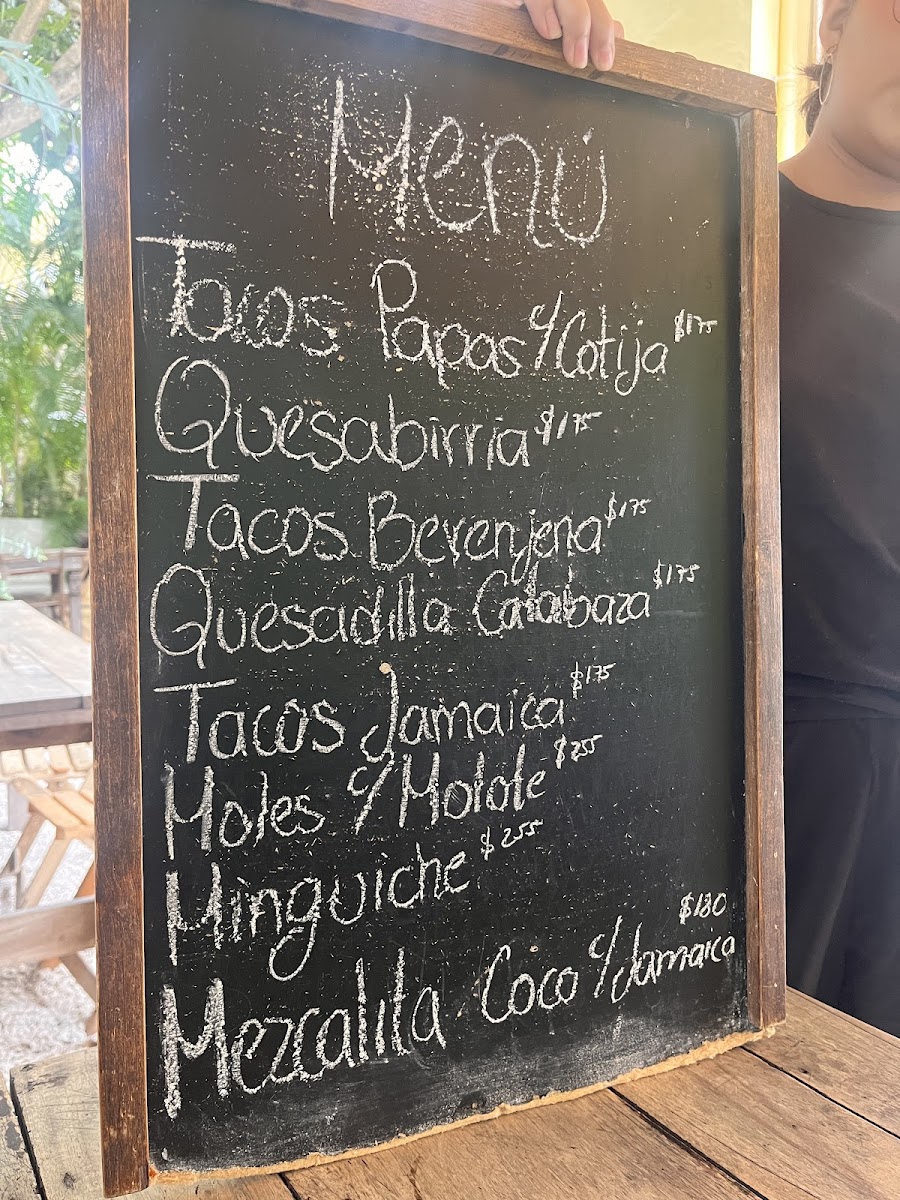 Menú
Tacos Papas c/ Cotija $175
Quesabirria $175
Tacos Berenjena $175
Quesadilla Calabaza $175
Tacos Jamaica $175
Moles c/ Molote $255
Minguiche $255
Mezcalita Coco c/ Jamaica $180